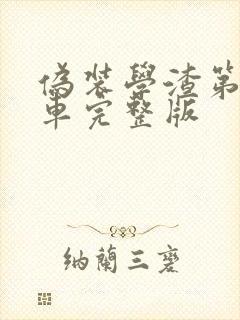 偽裝學渣第
車完整版
納蘭三礳